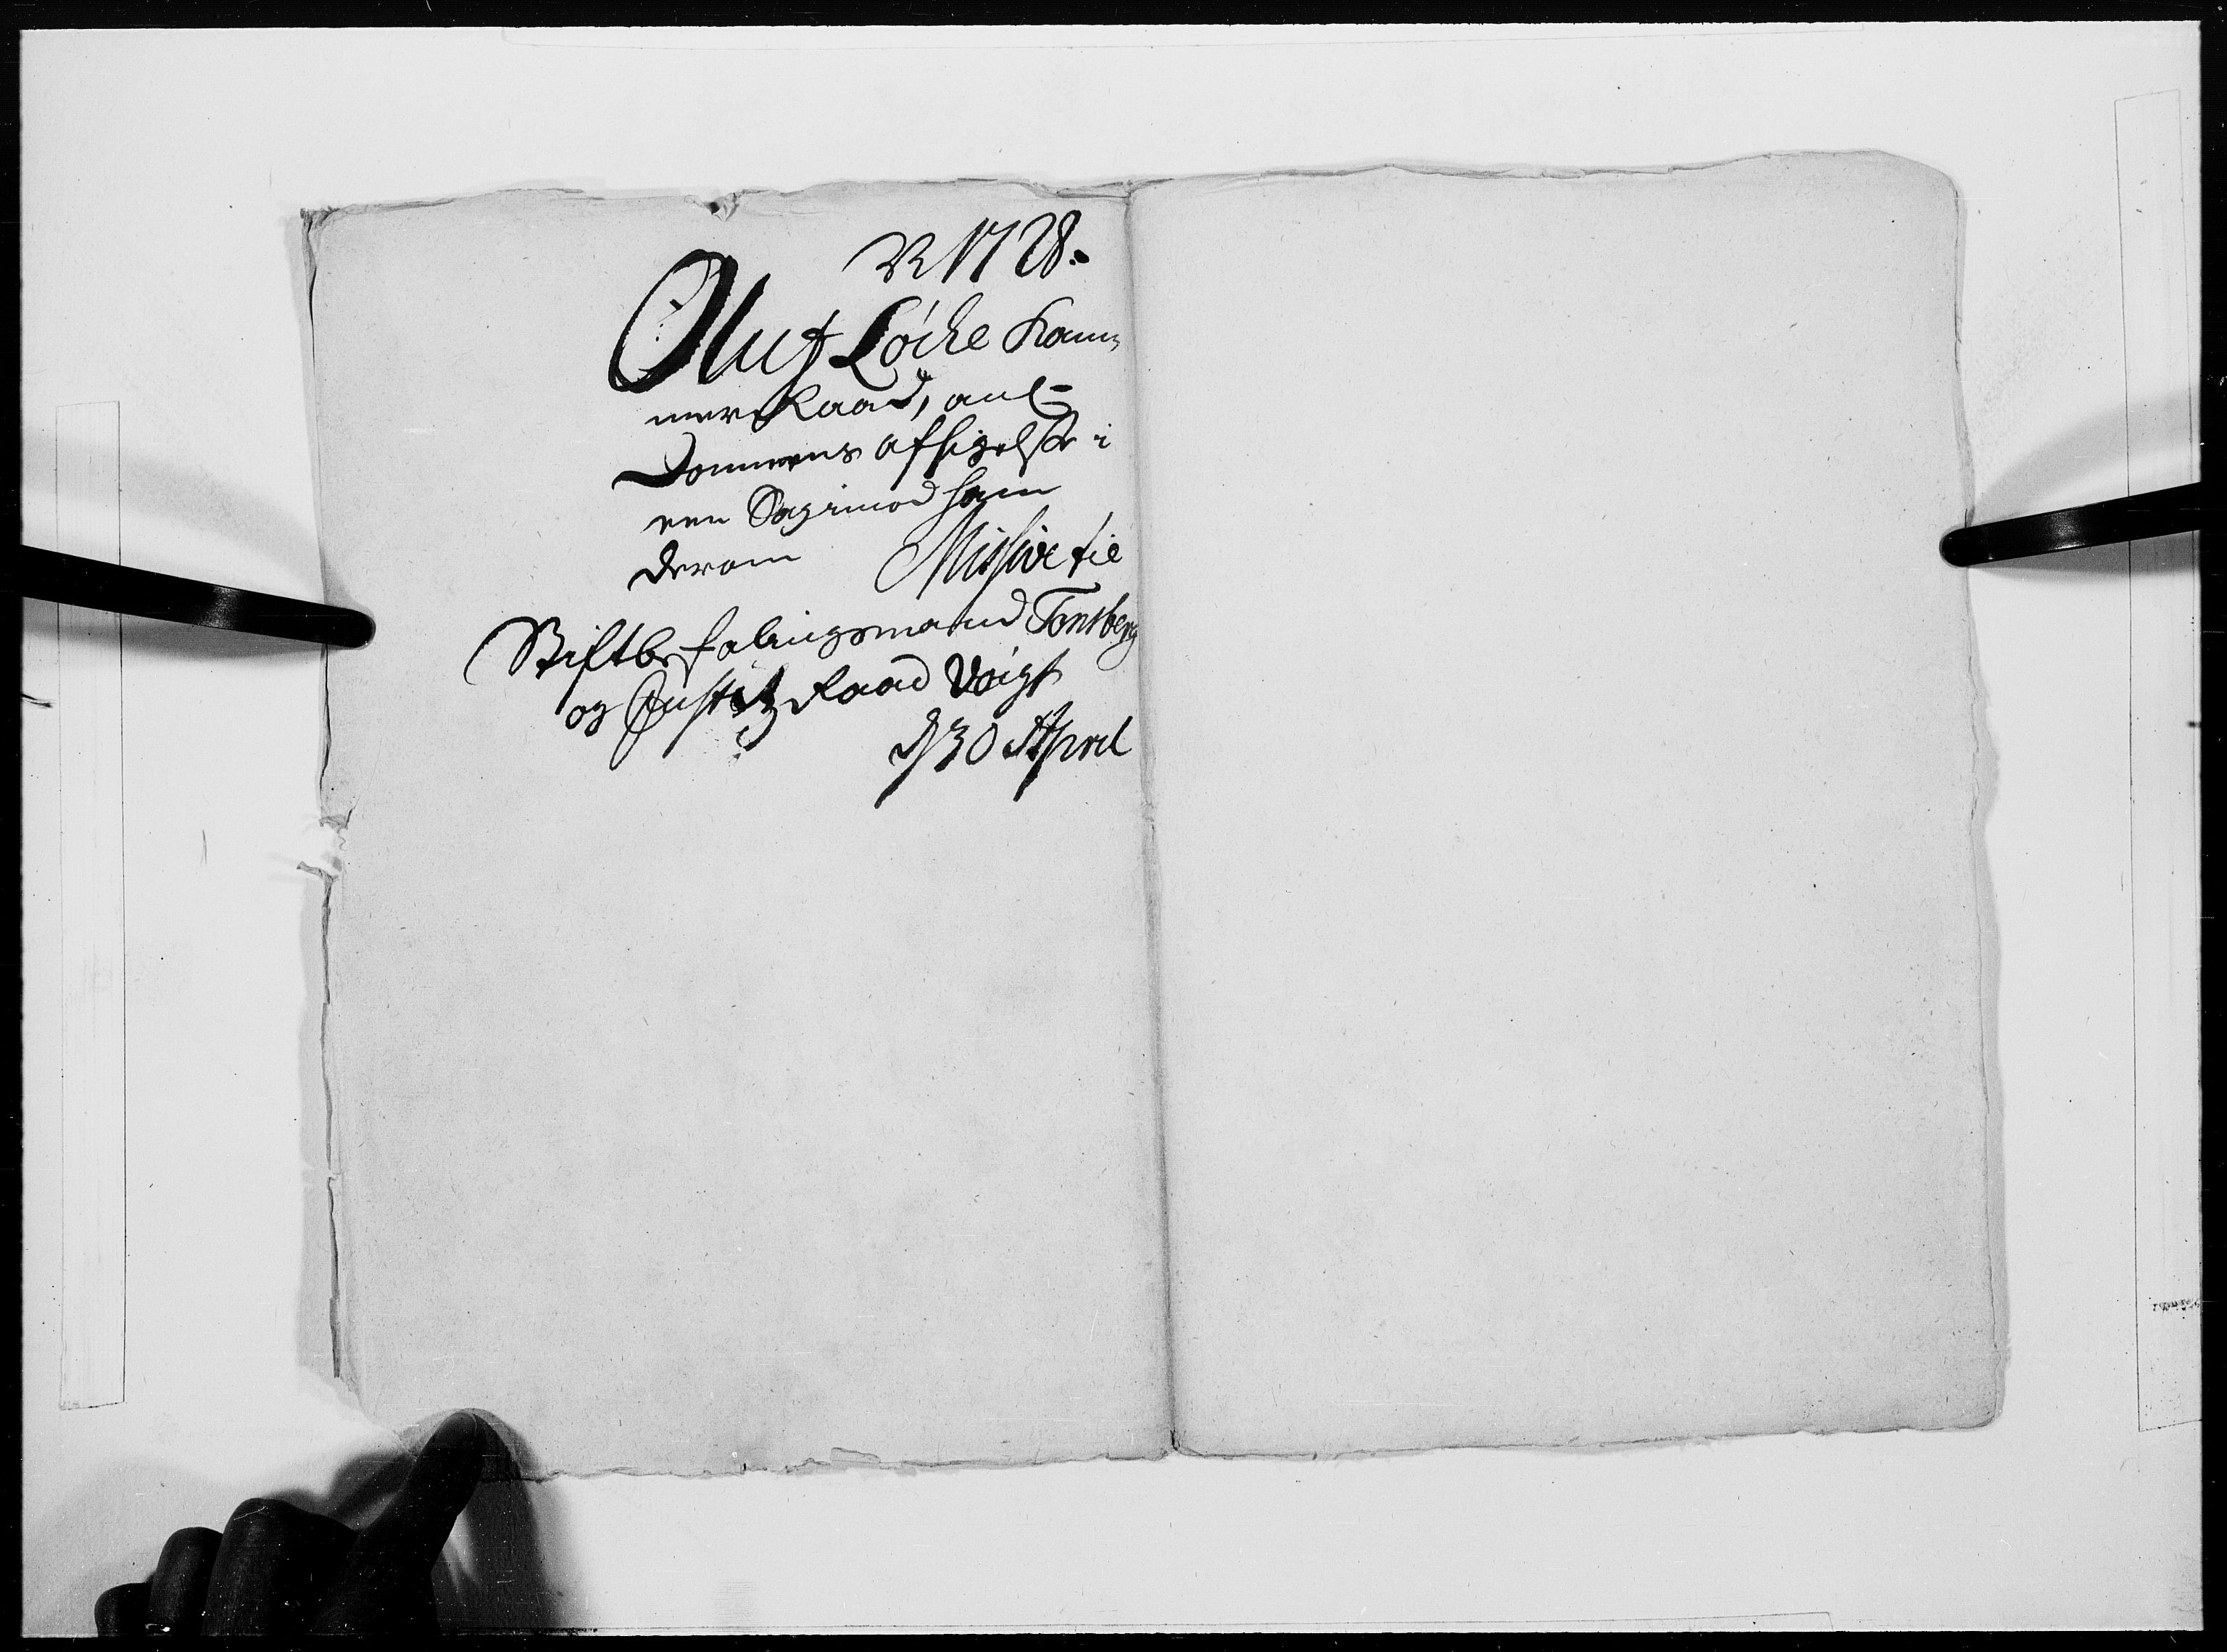 1728.
Oluf Löche Kam-
mer Raad, anl=
Dommens afsigelse i
een Sag imod ham
derom Missive til
Stiftbefalingsmand Tonsberg
og Justitz Raad Voigt
d 30 April